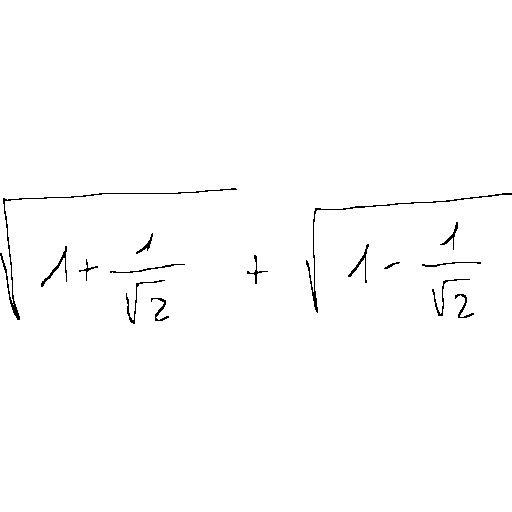 \sqrt{1+\frac{1}{\sqrt{2}}}+\sqrt{1-\frac{1}{\sqrt{2}}}